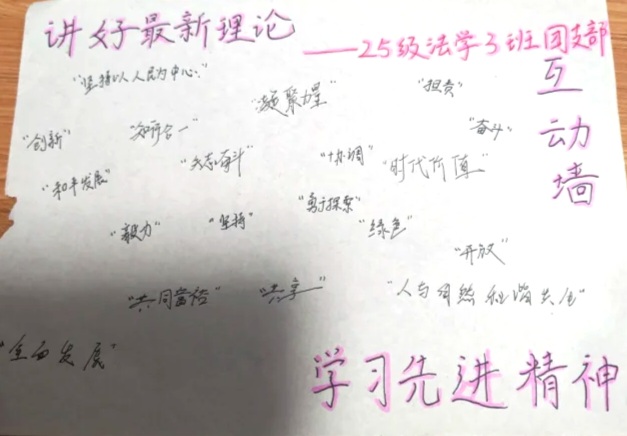 讲好最新理论
——25级法学3班团支部
互动墙
"坚持以人民为中心"
"凝聚力量"
"担责"
"创新"
"知行合一"
"奋斗"
"矢志奋斗"
"协调"
"时代价值"
"和平发展"
"勇于探索"
"毅力"
"坚持"
"绿色"
"开放"
"共同富裕"
"共享"
"人与自然和谐共生"
"全面发展"
学习先进精神